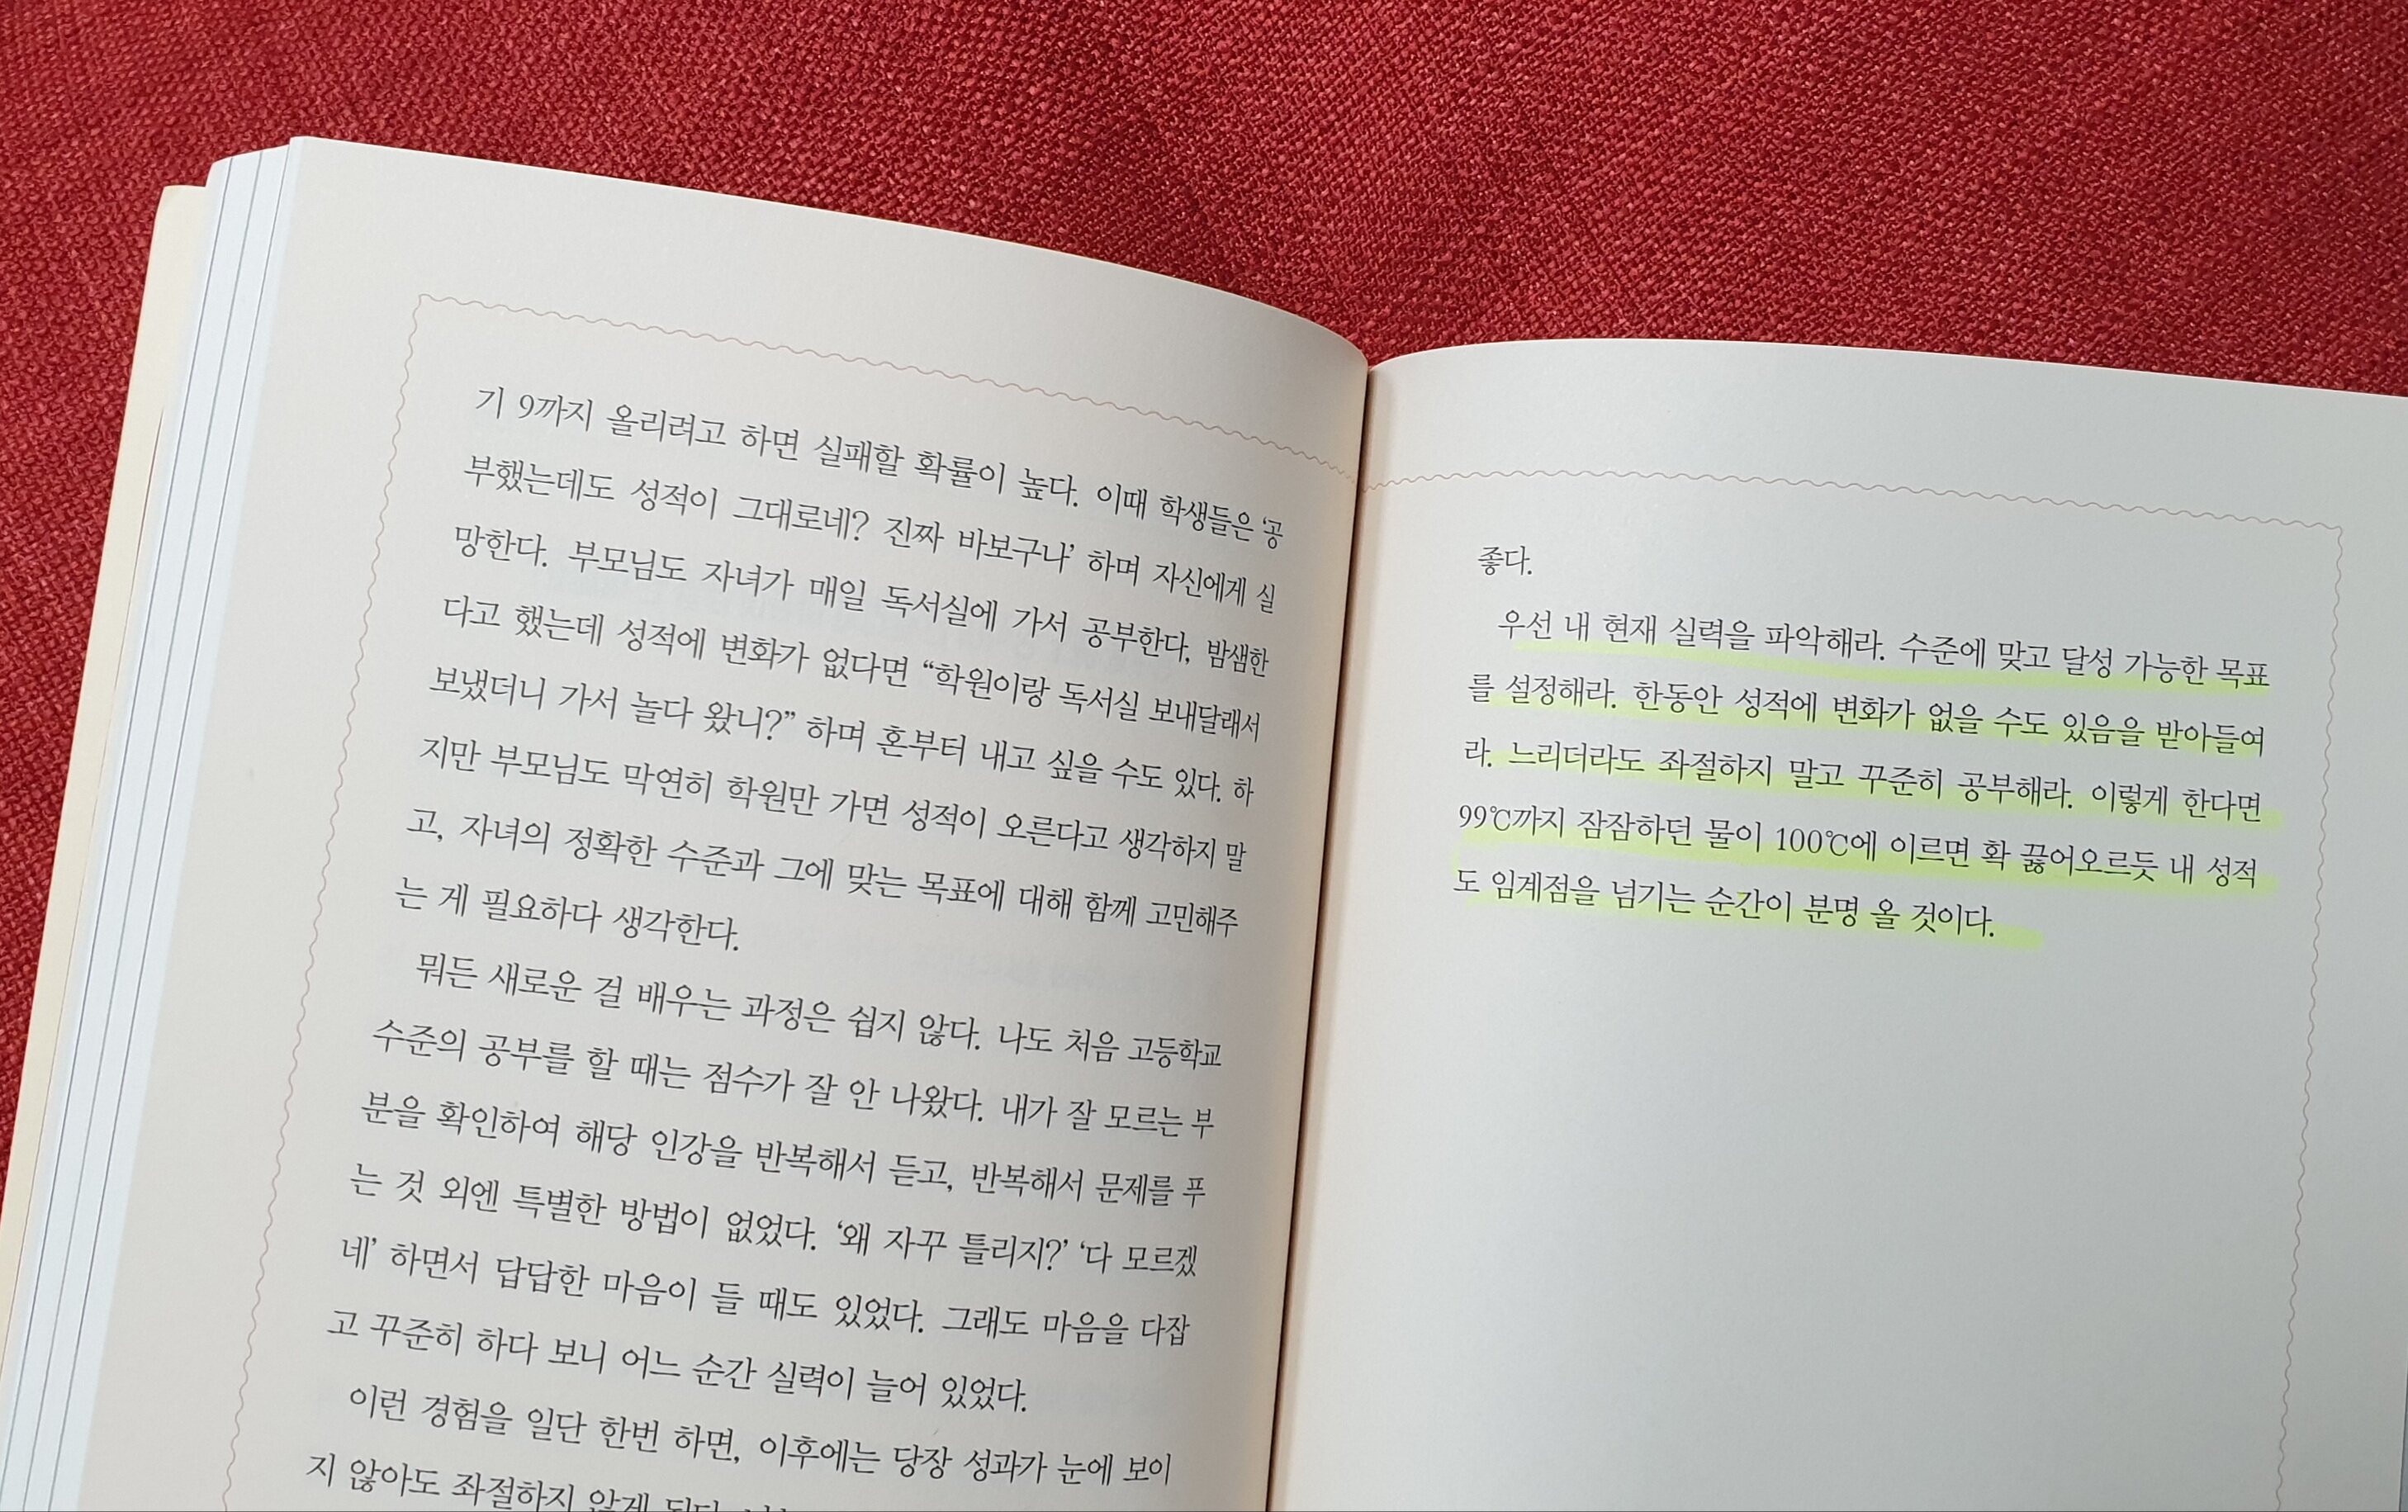 기 9까지 올리려고 하면 실패할 확률이 높다. 이때 학생들은 ‘공
부했는데도 성적이 그대로네? 진짜 바보구나’ 하며 자신에게 실
망한다. 부모님도 자녀가 매일 독서실에 가서 공부한다, 밤샘한
다고 했는데 성적에 변화가 없다면 “학원이랑 독서실 보내달래서
보냈더니 가서 놀다 왔니?” 하며 혼부터 내고 싶을 수도 있다. 하
지만 부모님도 막연히 학원만 가면 성적이 오른다고 생각하지 말
고, 자녀의 정확한 수준과 그에 맞는 목표에 대해 함께 고민해주
는 게 필요하다 생각한다.
뭐든 새로운 걸 배우는 과정은 쉽지 않다. 나도 처음 고등학교
수준의 공부를 할 때는 점수가 잘 안 나왔다. 내가 잘 모르는 부
분을 확인하여 해당 인강을 반복해서 듣고, 반복해서 문제를 푸
는 것 외엔 특별한 방법이 없었다. ‘왜 자꾸 틀리지?’ ‘다 모르겠
네’ 하면서 답답한 마음이 들 때도 있었다. 그래도 마음을 다잡
고 꾸준히 하다 보니 어느 순간 실력이 늘어 있었다.
이런 경험을 일단 한번 하면, 이후에는 당장 성과가 눈에 보이
지 않아도 좌절하지 않게 된다.
좋다.
우선 내 현재 실력을 파악해라. 수준에 맞고 달성 가능한 목표
를 설정해라. 한동안 성적에 변화가 없을 수도 있음을 받아들여
라. 느리더라도 좌절하지 말고 꾸준히 공부해라. 이렇게 한다면
99℃까지 잠잠하던 물이 100℃에 이르면 확 끓어오르듯 내 성적
도 임계점을 넘기는 순간이 분명 올 것이다.